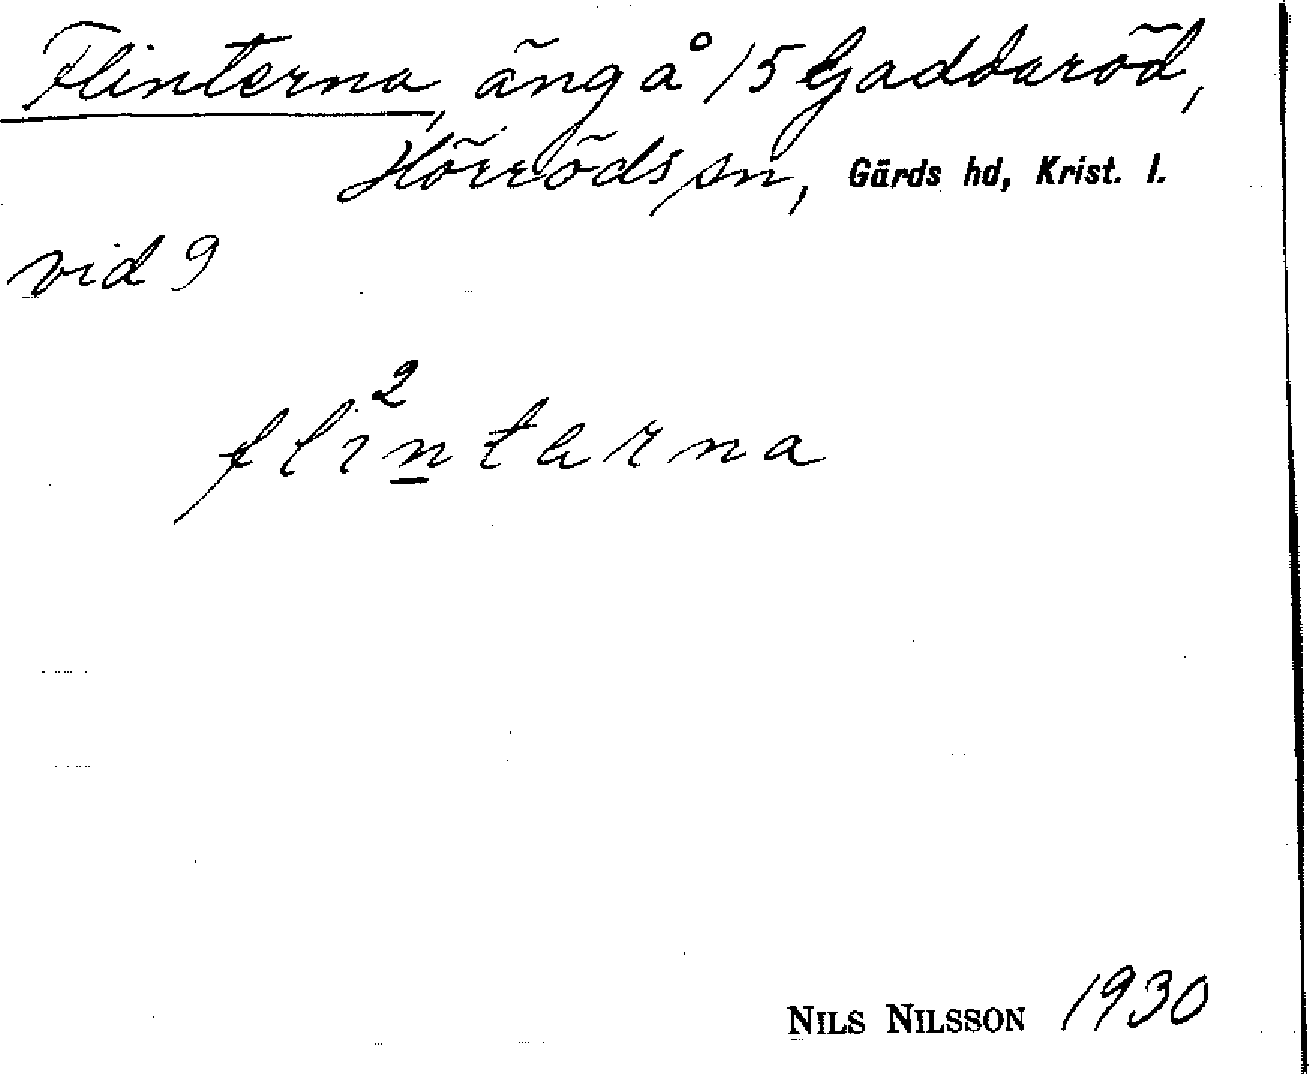 Flinterna, äng å 15 Gaddaröd,
Hörröds sn, Gärds hd, Krist. l.
vid 9
2
flintarna
NILS NILSSON 1930